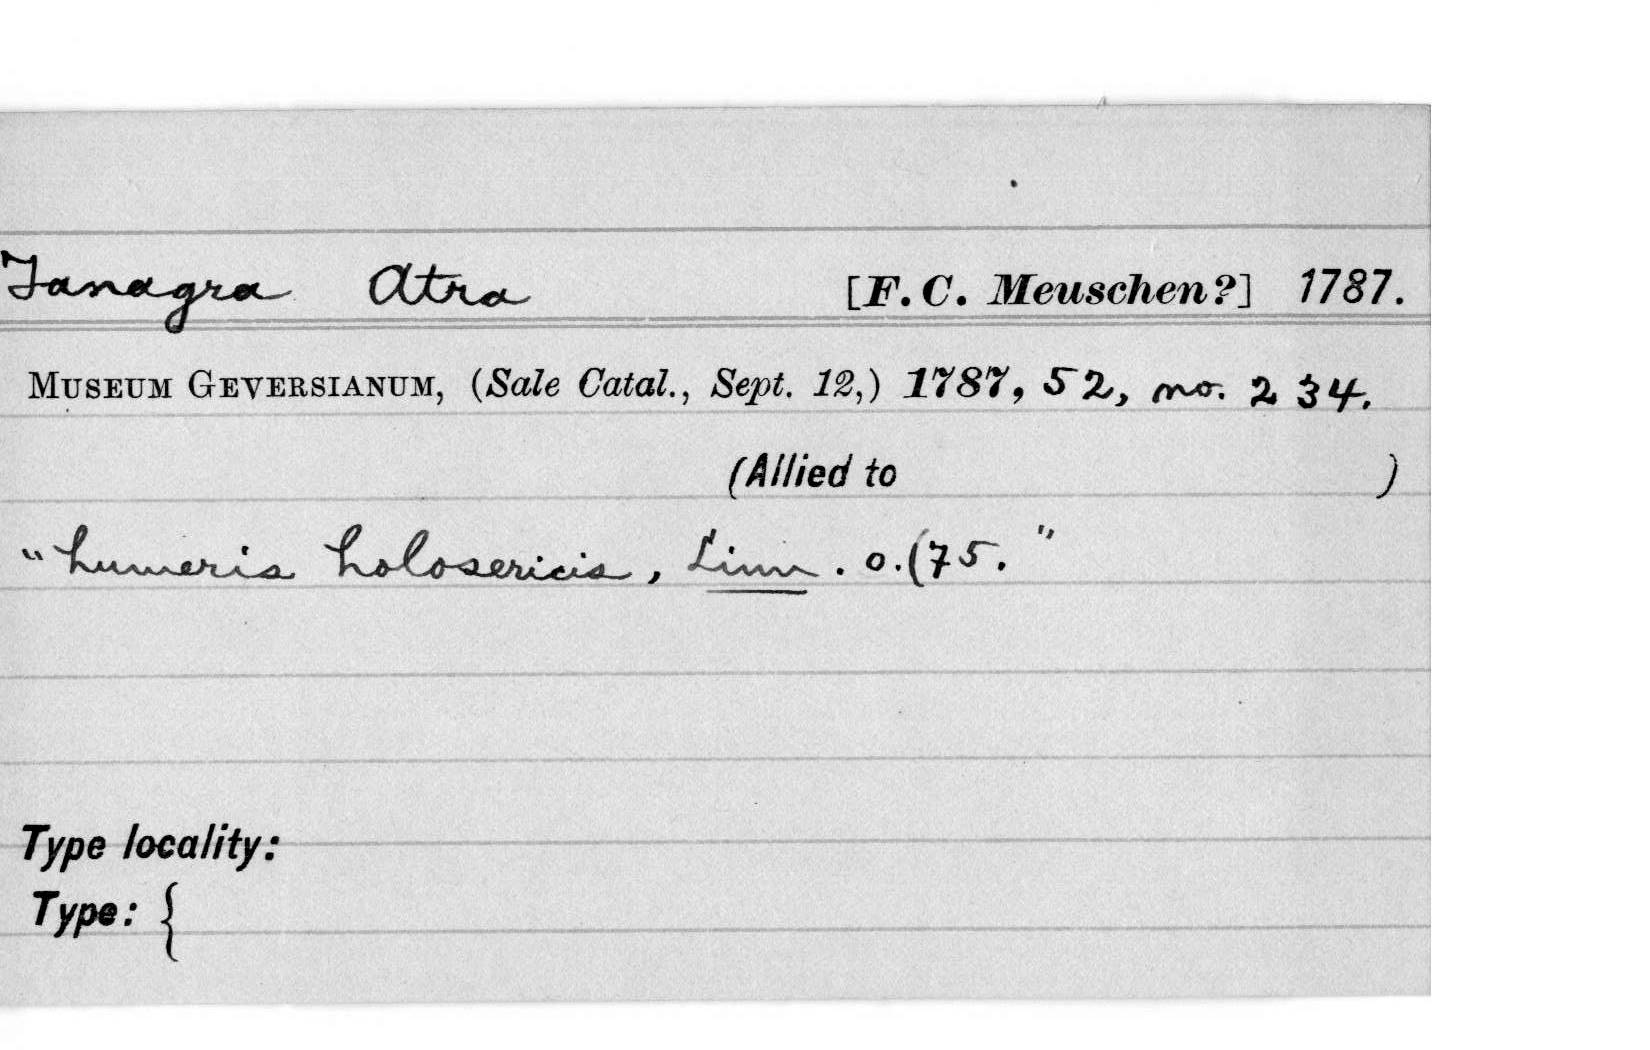 Tanagra Atra [F. C. Meuschen?] 1787.
MUSEUM GEVERSIANUM, (Sale Catal., Sept. 12,) 1787, 52, no. 234.
(Allied to )
"humeris holosericis, Linn. o.(75."
Type locality:
Type: {